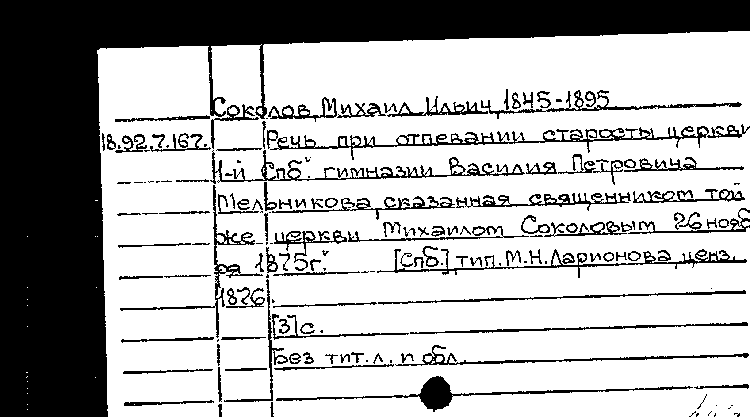 Соколов, Михаил Ильич, 1845-1895
18.92.7.167. Речь при отпевании старосты церкви
1-й Спб. гимназии Василия Петровича
Мельникова, сказанная священником той
же церкви Михаилом Соколовым 26 нояб
ря 1875г. [Спб.], тип. М.Н. Ларионова, ценз.
1876.
[3] с.
Без тит. л. и обл.